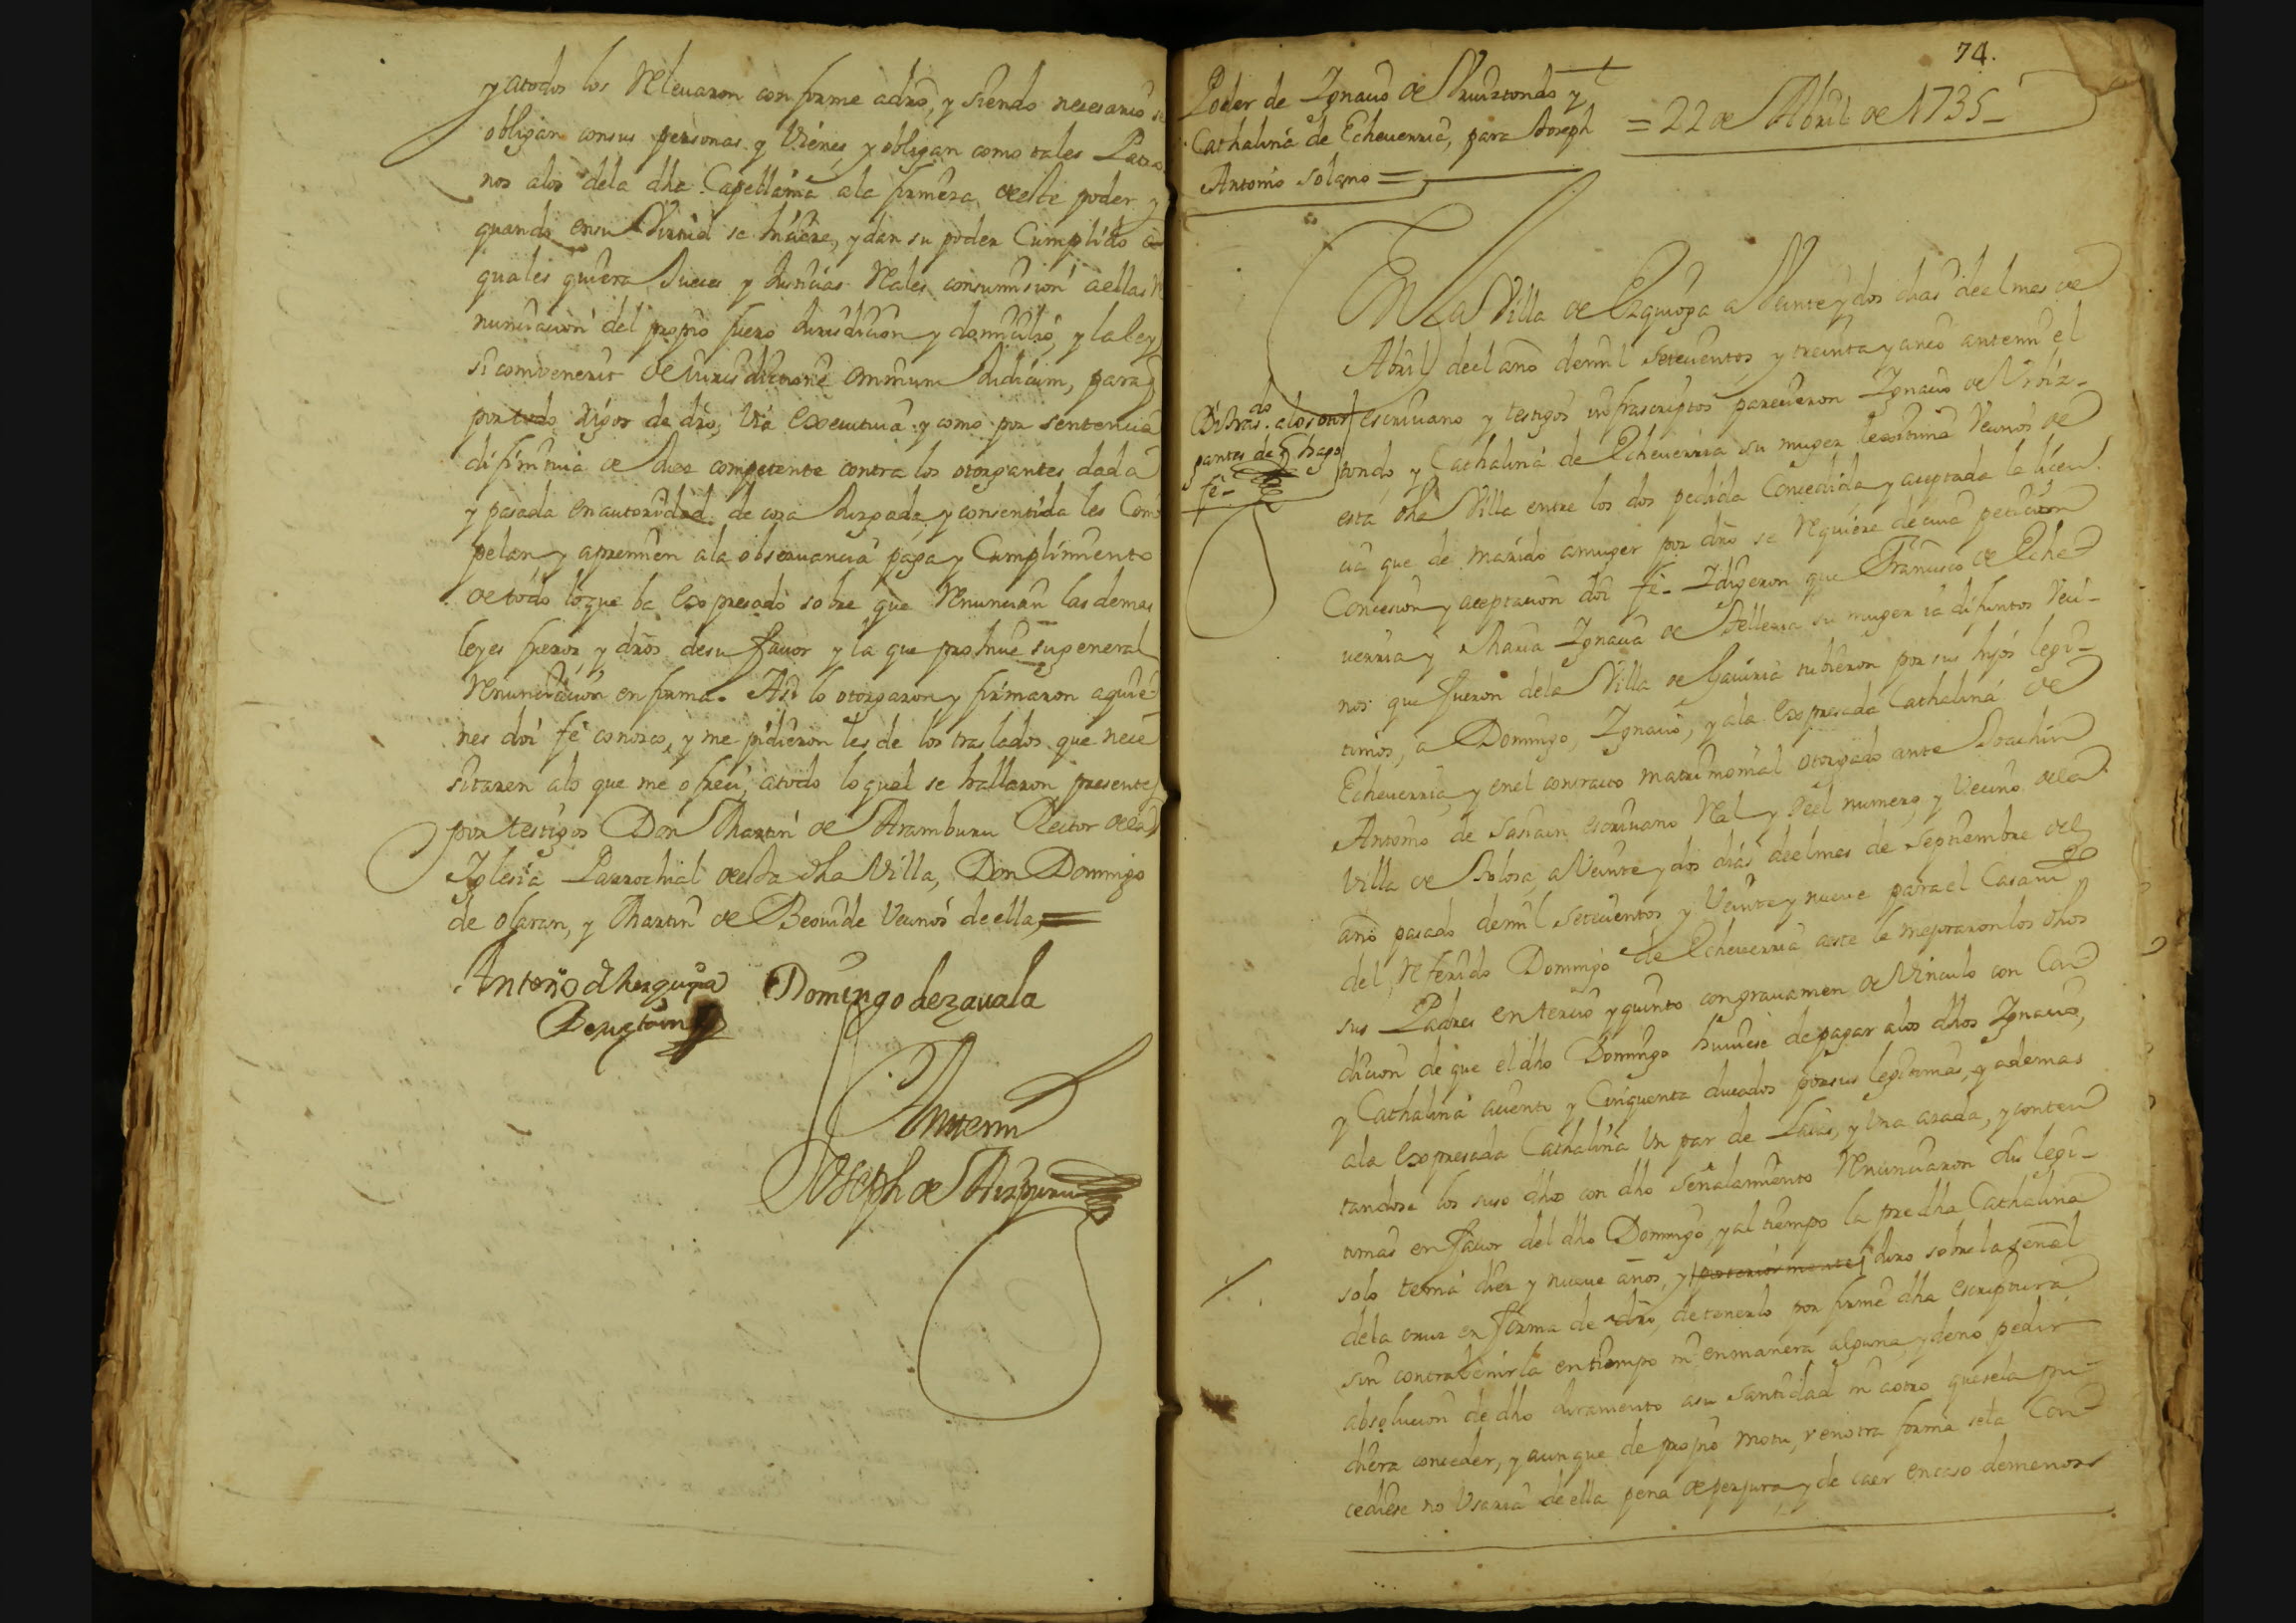 y atodos los Releuaron conforme adro, y siendo necesario se
obligan consus personas y Vienes, y obligan como tales Patro
nos alos dela dha Capellania ala firmeza de este poder y
quando ensu Virtud se hiciere, y dan su poder Cumplido a
quales quiera Jueces y Justicias Reales consumision aellas Re
nunciacion del propio fuero Jurisdicion y domicilio, y la ley
si combenerit de Jurisdictione Omnium Judicum, para q
por todo rigor de dro, Via Executiua y como por sentencia
difinitiua de Juez competente contra los otorgantes dada
y pasada en autoridad de cosa Juzgada y consentida les Com
pelan, y apremien ala obseruancia paga y Cumplimiento
de todo loque ba Expresado sobre que Renuncian las demas
leyes fueros y dros desu fauor y la que prohiue la general
Renunciacion en forma. Asi lo otorgaron y firmaron aquie
nes doi fe conozco, y me pidieron les de los traslados que nece
sitaren alo que me ofreci, atodo lo qual se hallaron presentes
por testigos Don Martin de Aramburu Rector dela
Iglesia Parrochial de esta dha Villa, Don Domingo
de olaran, y Martin de Beouide Vecinos de ella,=
Antonio de
Domingo de zauala
Antemi
Joseph de Aizpuru
74.
Poder de Ignacio de y
Cathalina de Echeuerria, para Joseph
Antonio Solano =
= 22 de Abril de 1735-
En La Villa de Ezquioga a Veinte y dos dias deel mes de
Abril deel año demil setecientos y treinta y cinco antemi el
alos otor
gantes de q hago
fe-
escriuano y testigos infrascriptos parecieron Ignacio de Vrbiz-
tondo y Cathalina de Echeuerria su muger legitima Vecinos de
esta dha Villa entre los dos pedida Concedida y aceptada la licen
cia que de marido amuger por dro se Requiere decuia peticion
Concesion y aceptacion doi fe- Idigeron que Francisco de Eche
uerria y Maria Ignacia de Telleria su muger ia difuntos Veci-
nos que fueron dela Villa de Gauiria tubieron por sus hijos legi-
timos, a Domingo, Ignacio, y ala Expresada Cathalina de
Echeuerria, y enel contracto matrimonial otorgado ante Joachin
Antonio de Sasiain escriuano Real y deel numero, y Vecino dela
Villa de Tolosa, a Veinte y dos dias deel mes de septiembre del
año pasado demil setecientos y Veinte y nueue para el Casami
del Referido Domingo de Echeuerria aeste le mejoraron los dhos
sus Padres en tercio y quinto con grauamen de Vinculo con Con
dicion de que el dho Domingo huuiese de pagar alos dhos Ignacio,
y Cathalina aciento y Cinquenta ducados por sus legitimas, y ademas
ala Expresada Cathalina Un par de Laias, y Vna azada, y conten
tandose los suso dhos con dho señalamiento Renunciaron sus legi-
timas en fauor del dho Domingo, y al tiempo la predha Cathalina
solo tenia diez y nueue años, y posteriormente Juro sobre la señal
dela cruz en forma de dro, de tenerlo por firme dha escriptura
sin contrabenirla en tiempo ni enmanera alguna y deno pedir
absolucion dedho Juramento asu Santidad ni aotro quesela pu
diera conceder, y aunque de propio motu, v enotra forma sela Con
cediese no Vsaria de ella pena de perjura, y de caer encaso demenos